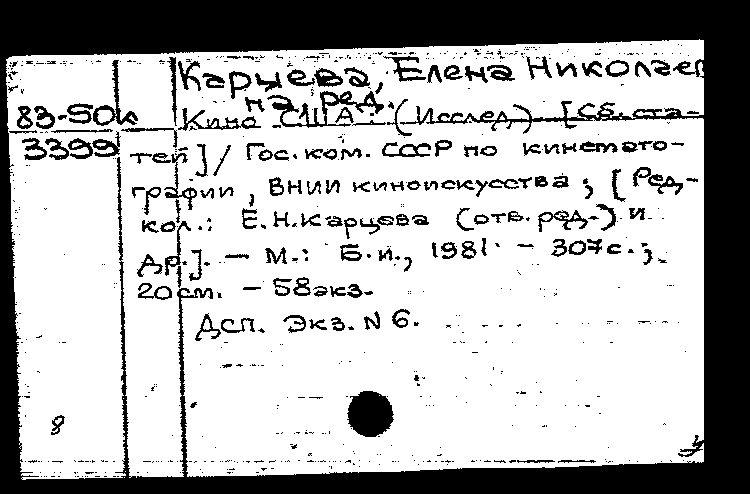 Карцева, Елена Николаев
на, ред.
83-50к Кино США: (Исслед.) [Сб. ста-
3399 тей] / Гос. ком. СССР по кинемато-
графии, ВНИИ киноискусства; [Ред-
кол.: Е.Н. Карцева (отв. ред.) и
др.]. — М.: Б.и., 1981. - 307с.;
20 см. - 58экз.
Дсп. Экз. N 6.
8